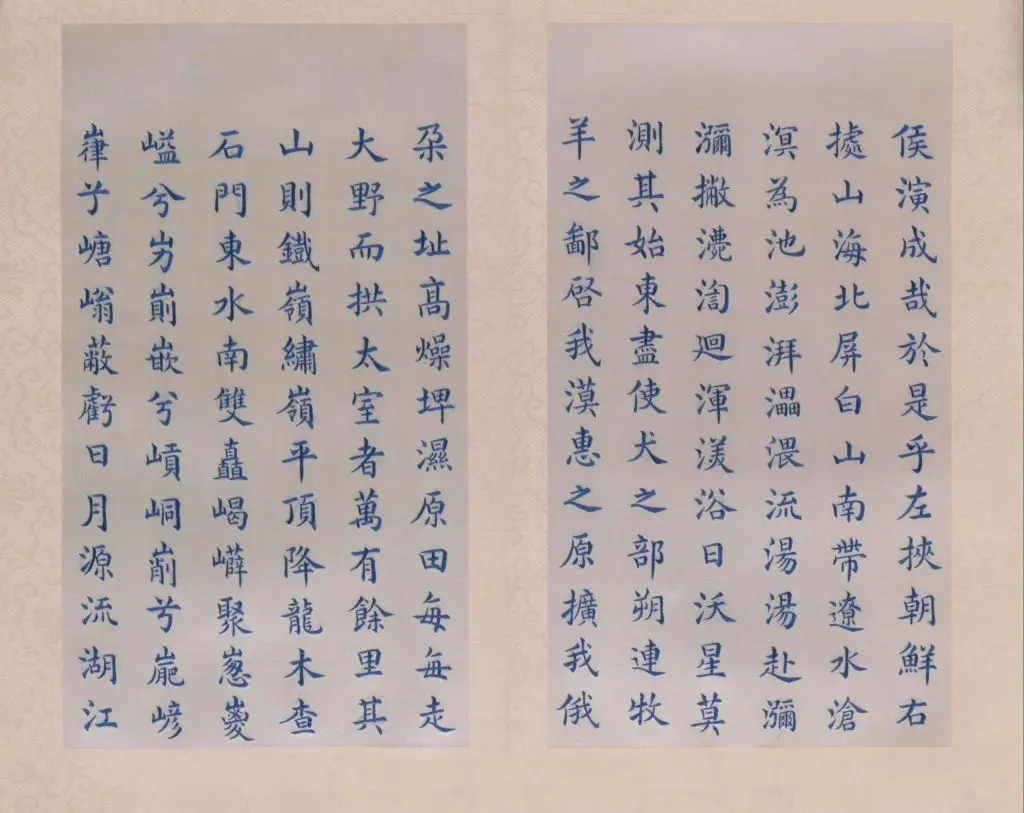 侯演成哉於是乎左挾朝鮮右
據山海北屏白山南帶遼水滄
溟為池澎湃渨流湯湯赴瀰
瀰撇廻渾渼浴日沃星莫
測其始東盡使犬之部朔連牧
羊之鄙啓我漠惠之原擴我俄
朶之址高燥埤濕原田每每走
大野而拱太室者萬有餘里其
山則鐵嶺繡嶺平頂降龍木查
石門東水南雙矗嵑聚
兮屴崱嵌兮嵿峒兮嵾
嵂兮嵣嵡蔽虧日月源流湖江